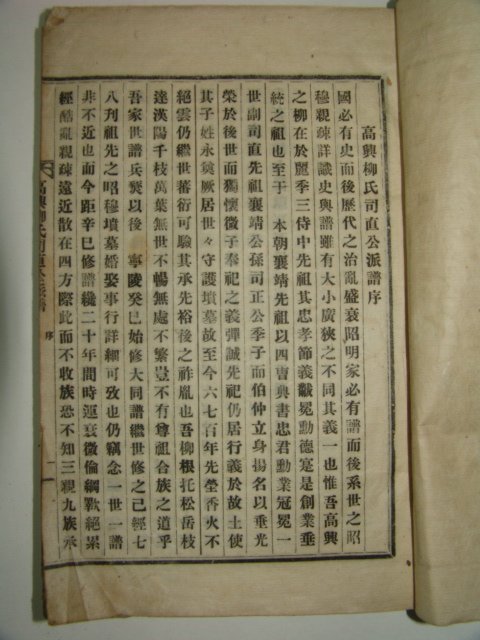 高興柳氏司直公派譜序
國必有史而後歷代之治亂盛衰昭明家必有譜而後系世之昭
穆親疎詳識史與譜雖有大小廣狹之不同其義一也惟吾高興
之柳在於麗季三侍中先祖其忠孝節義黻冕勳德寔是創業垂
統之祖也至于 本朝襄靖先祖以四曺典書忠君勳業冠冕一
世副司直先祖襄靖公孫司正公季子而伯仲立身揚名以垂光
榮於後世而獨懷微子奉祀之義彈誠先祀仍居行義於故土使
其子姓永奠厥居世々守護墳墓故至今六七百年先塋香火不
絕雲仍繼世蕃衍可驗其承先裕後之祚胤也吾柳根托松岳枝
達漢陽千枝萬葉無世不暢無處不繁豈不有尊祖合族之道乎
吾家世譜兵燹以後 寧陵癸巳始修大同譜繼世修之已經七
八刋祖先之昭穆墳墓婚娶事行詳細可攷也仍竊念一世一譜
非不近也而今距辛巳修譜纔二十年間時運衰微倫綱斁絕累
經酷亂親疎遠近散在四方際此而不收族恐不知三親九族承
高興柳氏司直公派譜
序
一